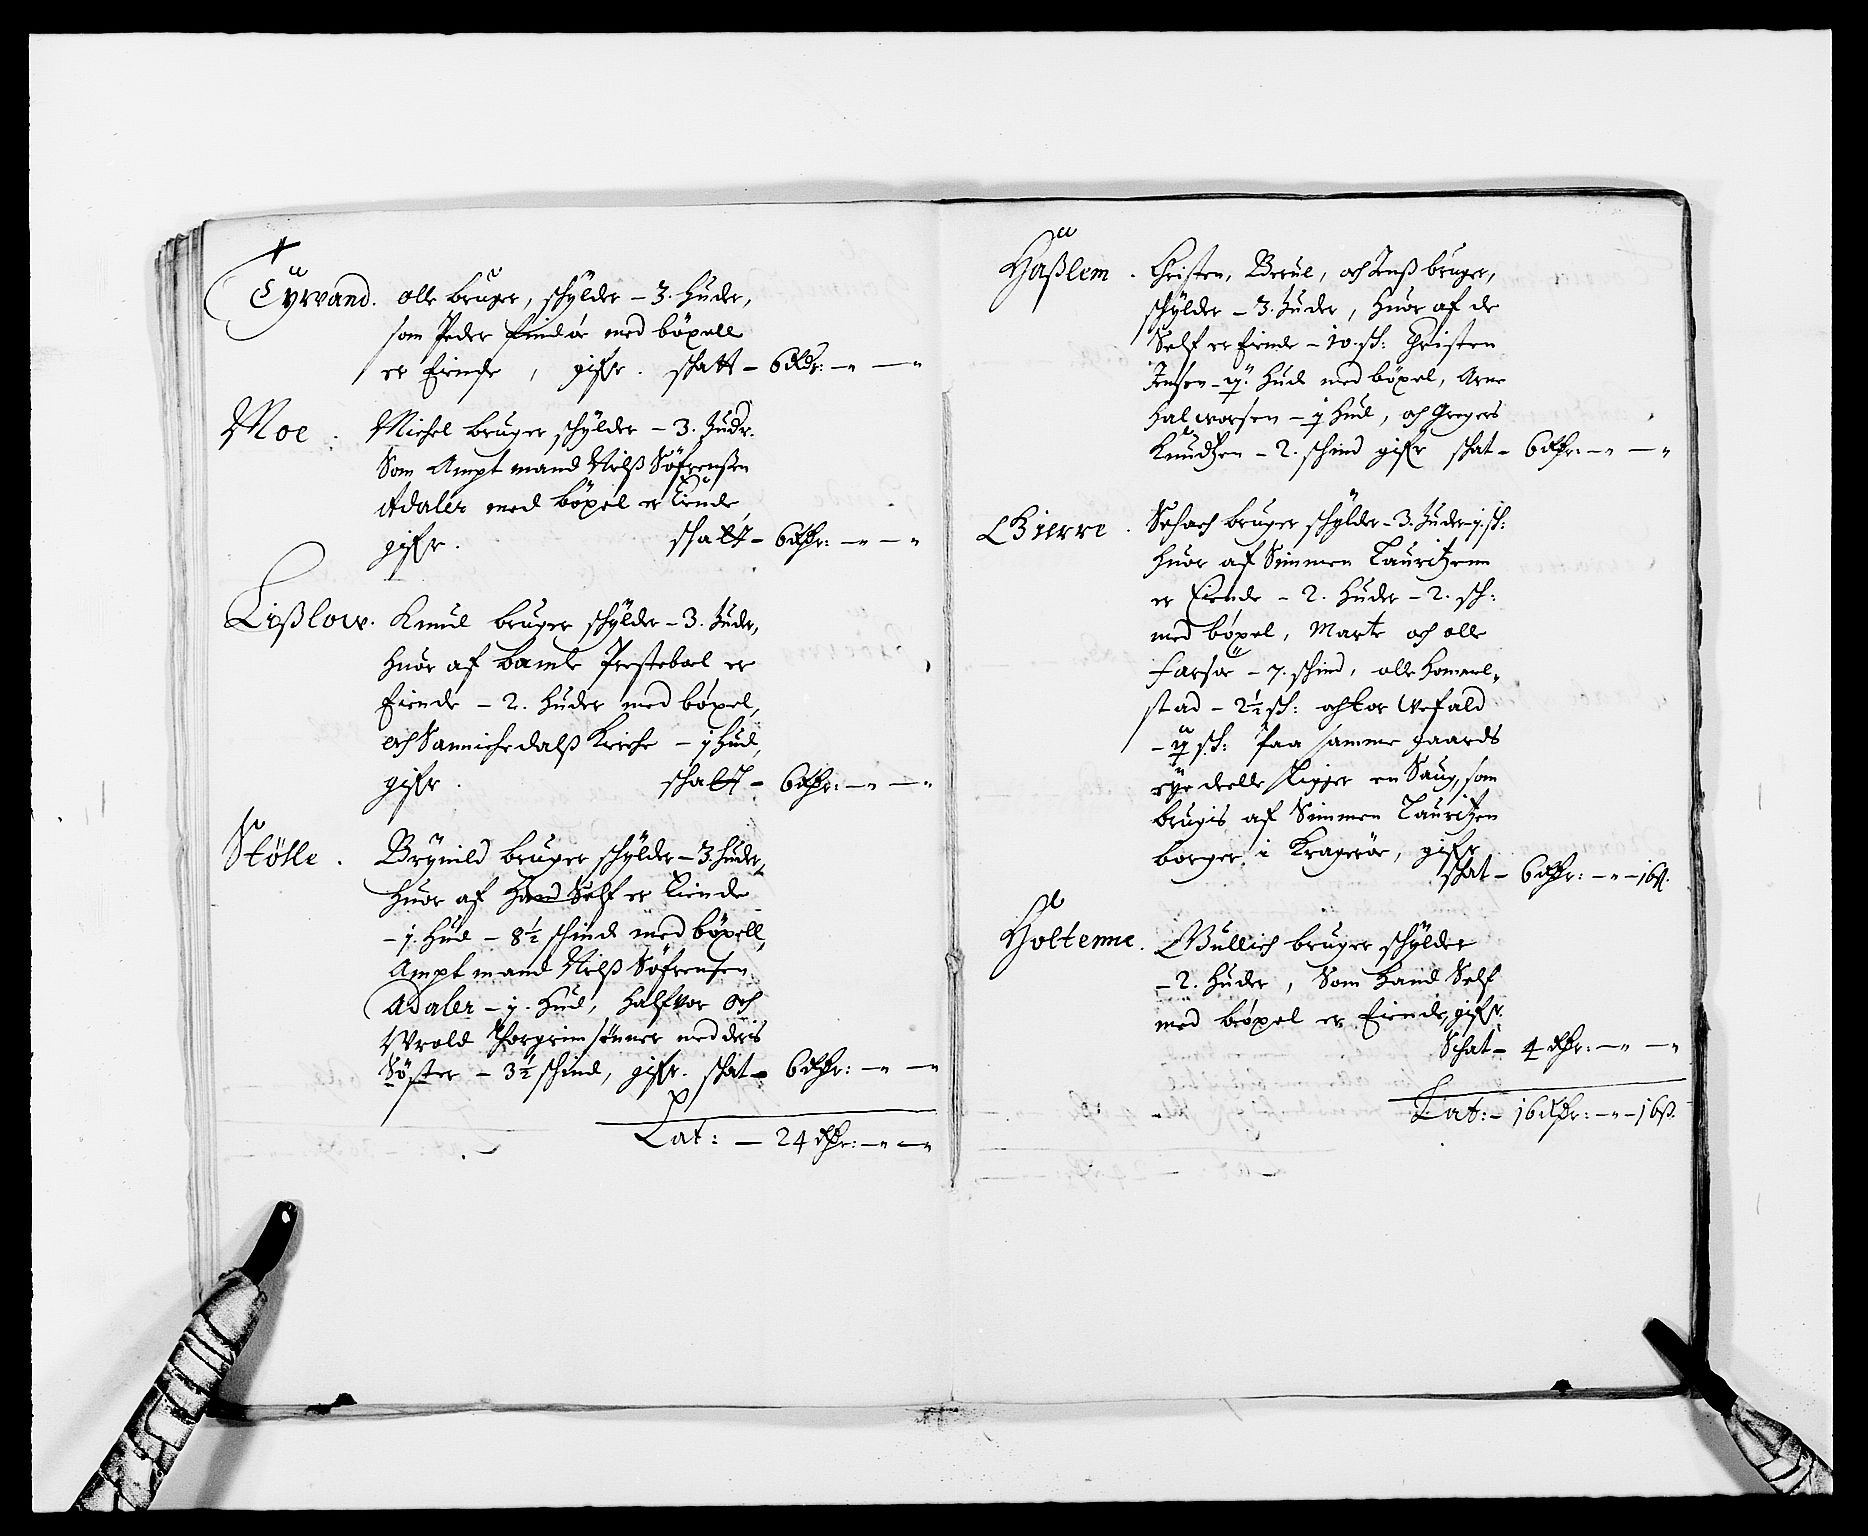 Tyrvand. olle bruger, schylder – 3. huder,
som Peder med böxell
er Eiende, gifr. schatt – 6 Rdr: – " – "
Moe. Michel bruger schylder – 3. hudr.
Som Amptmand Nilß Söfrensen
Adaler med böxel er Eiende
gifr. schatt – 6 Rdr: – " – "
Lißlow. Knud bruger schylder – 3. huder,
huor af bamle Presteboel er
Eiende – 2. huder med böxel,
och Sannichedalß Kirche – j hud,
gifr. schatt – 6 Rdr: – " – "
Stölle. Brynild bruger schylder – 3. huder,
huor af Hand Self er Eiende
– j. hud – 8½ schind med böxell,
Amptmand Nilß Söfrensen
Adaler – j. hud, halfvor Och
Wrold Thorgrimsönner med deris
Söster – 3½ schind, gifr. schat – 6 Rdr: – " – "
Lat: – 24 Rdr: – " – "
Haßlem. Christen, och Jenß bruger,
schylder – 3. huder, huor af de
Self er Eiende – 10. sch: Christen
Jensen hud med böxel, Arne
halworsen – j hud, och Gregers
Knudtzen – 2. schind gifr schat – 6 Rdr: – " – "
Bierre. bruger schylder – 3. huder – j. sch:
huor af Simmen Lauritzenn
er Eiende – 2. huder – 2. sch:
med böxel, Marte och olle
Farsöe – 7. schind, olle homel-
stad – 2½ sch: Wefald
sch: Paa samme gaards
eyedeelle Ligger en Saug, som
brugis af Simmen Lauritzen
borger i Kragerøe, gifr
schat – 6 Rdr: – " – 16 ß.
Holtenne. Gullich bruger schylder
– 2. huder, Som Hand Self
med böxel er Eiende, gifr.
Schat – 4 Rdr: – " – "
Lat: – 16 Rdr: – " – 16 ß.